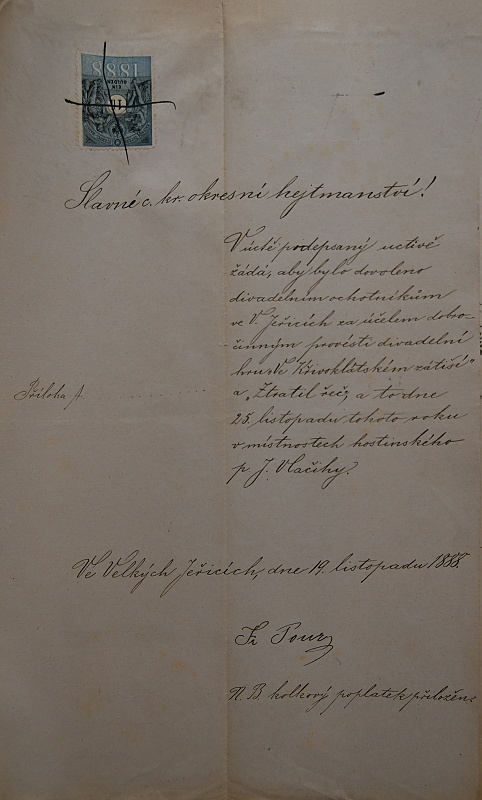 1888
EIN
GULDEN
Slavné c. kr. okresní hejtmanství!
V úctě podepsaný uctivě
žádá, aby bylo dovoleno
divadelním ochotníkům
ve V. Jeřicích za účelem dobro-
činným provésti divadelní
hru „Ve Křivoklátském zátiší"
Příloha A
a „Ztratil řeč", a to dne
25. listopadu tohoto roku
v místnostech hostinského
p. J. Vlačihy.
Ve Velkých Jeřicích, dne 19. listopadu 1888.
Fr. Pour
N.B. kolkový poplatek přiložen.